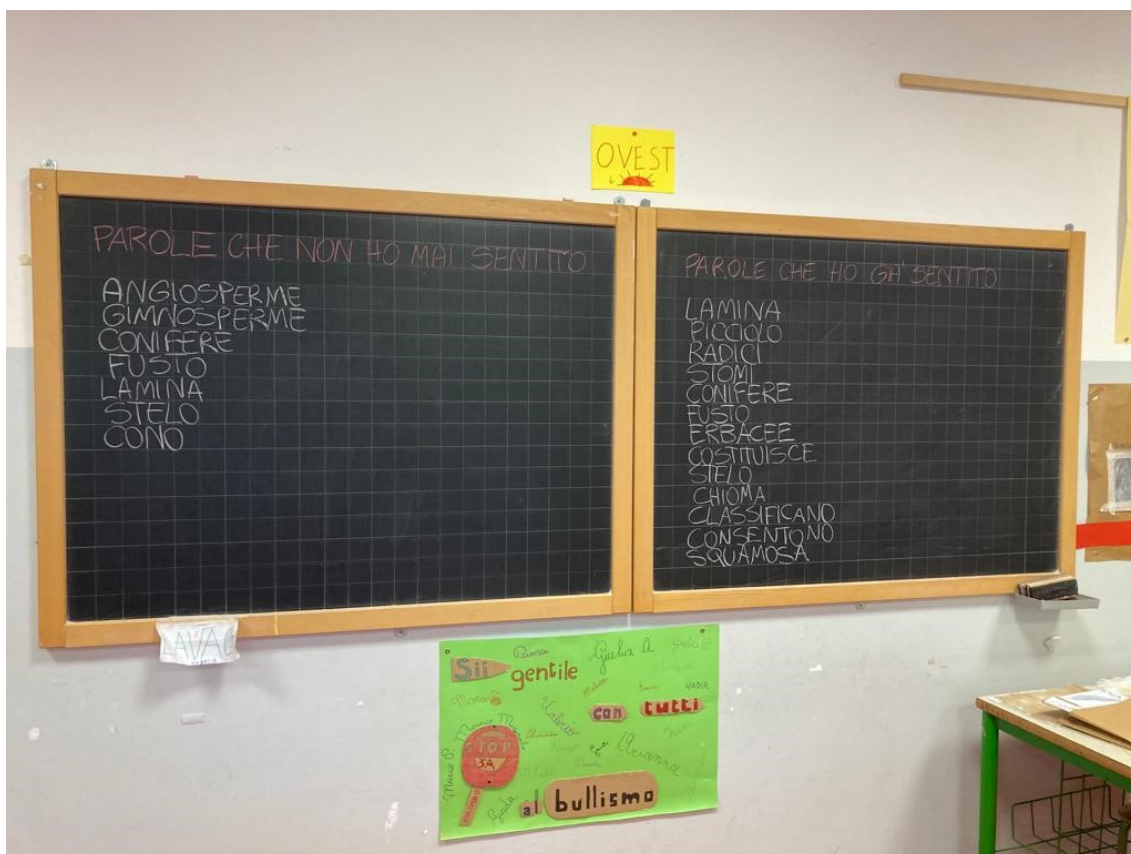 OVEST
PAROLE CHE NON HO MAI SENTITO
ANGIOSPERME
GIMNOSPERME
CONIFERE
FUSTO
LAMINA
STELO
CONO
PAROLE CHE HO GIÀ SENTITO
LAMINA
PICCIOLO
RADICI
STOMI
CONIFERE
FUSTO
ERBACEE
COSTITUISCE
STELO
CHIOMA
CLASSIFICANO
CONSENTONO
SQUAMOSA
Bianca
Giulia A
Sii
gentile
Marco
Valerio
NADIR
con tutti
STOP
3A
Arianna
Marco P.
Giada
al bullismo